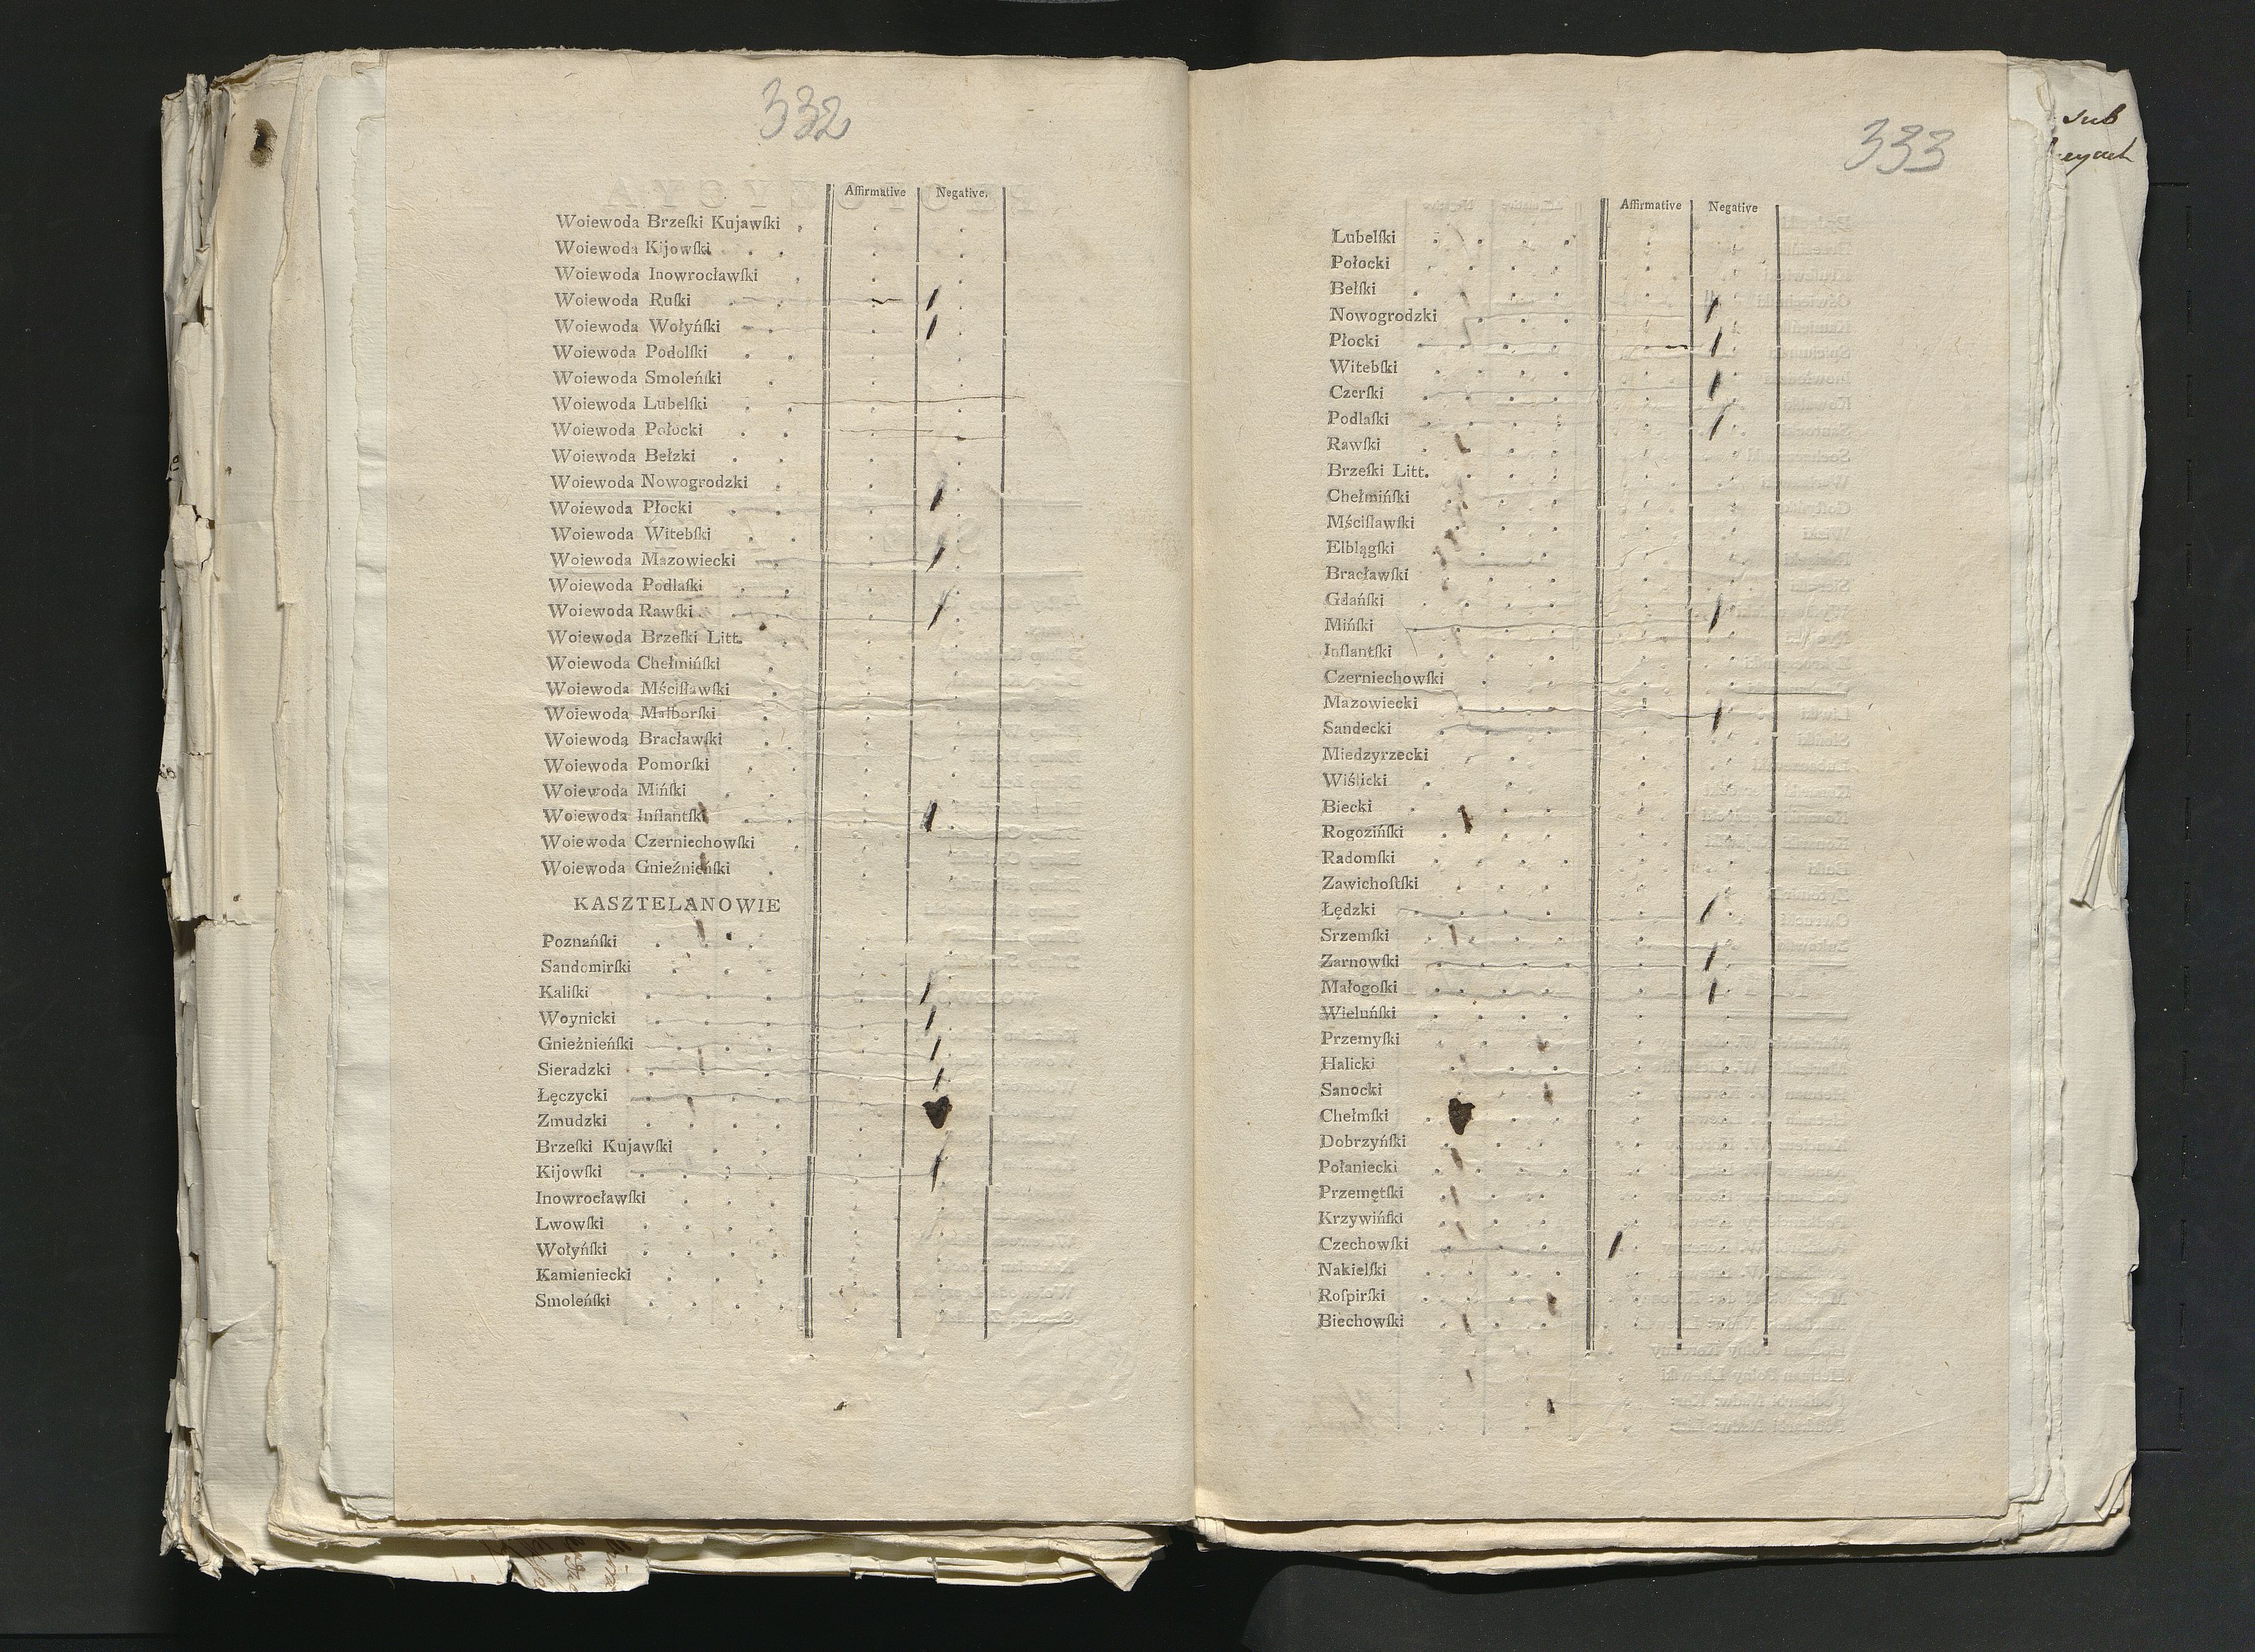 332
Affirmative Negative.
Woiewoda Brzeſki Kujawſki
Woiewoda Kijowſki
Woiewoda Inowrocławſki
Woiewoda Ruſki
Woiewoda Wołyńſki
Woiewoda Podolſki
Woiewoda Smoleńſki
Woiewoda Lubelſki
Woiewoda Połocki
Woiewoda Bełzki
Woiewoda Nowogrodzki
Woiewoda Płocki
Woiewoda Witebſki
Woiewoda Mazowiecki
Woiewoda Podlaſki
Woiewoda Rawſki
Woiewoda Brzeſki Litt.
Woiewoda Chełmińſki
Woiewoda Mściſławſki
Woiewoda Malborſki
Woiewoda Bracławſki
Woiewoda Pomorſki
Woiewoda Mińſki
Woiewoda Inflantſki
Woiewoda Czerniechowſki
Woiewoda Gnieźnieńſki
KASZTELANOWIE
Poznańſki
Sandomirſki
Kaliſki
Woynicki
Gnieźnieńſki
Sieradzki
Łęczycki
Zmudzki
Brzeſki Kujawſki
Kijowſki
Inowrocławſki
Lwowſki
Wołyńſki
Kamieniecki
Smoleńſki
333
Affirmative Negative
Lubelſki
Połocki
Bełſki
Nowogrodzki
Płocki
Witebſki
Czerſki
Podlaſki
Rawſki
Brzeſki Litt.
Chełmińſki
Mściſlawſki
Elblągſki
Bracławſki
Gdańſki
Mińſki
Inflantſki
Czerniechowſki
Mazowiecki
Sandecki
Miedzyrzecki
Wiślicki
Biecki
Rogozińſki
Radomſki
Zawichoſtſki
Łędzki
Srzemſki
Zarnowſki
Małogoſki
Wieluńſki
Przemyſki
Halicki
Sanocki
Chełmſki
Dobrzyńſki
Połaniecki
Przemętſki
Krzywińſki
Czechowſki
Nakielſki
Roſpirſki
Biechowſki
sub